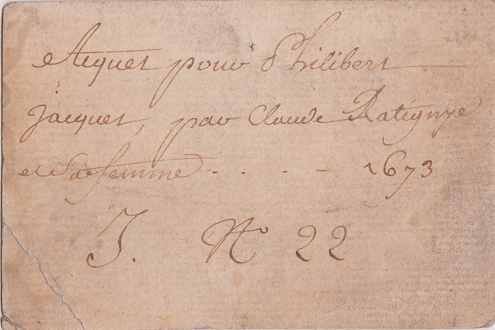 Aquet pour Philibert
Jacquet, par Claude Ratignye
et Sa femme - - - - 1673
J. N° 22